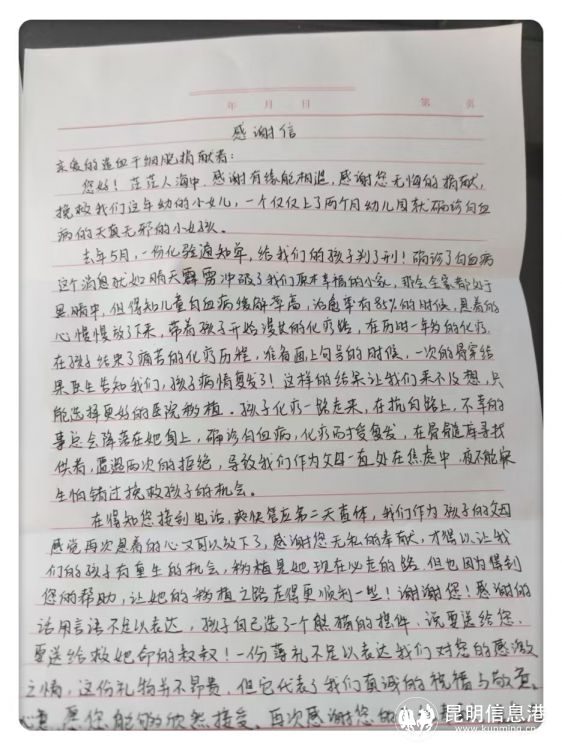 年 月 日 第 页
感谢信
亲爱的造血干细胞捐献者:
您好!茫茫人海中,感谢有缘能相遇,感谢您无悔的捐献,
挽救我们这年幼的小女儿,一个仅仅上了两个月幼儿园就确诊白血
病的天真无邪的小女孩。
去年5月,一份化验通知单,给我们的孩子判了刑!确诊了白血病
这个消息就如晴天霹雳冲破了我们原本幸福的小家,那会全家都处于
黑暗中,但得知儿童白血病缓解率高,治愈率有85%的时候,悬着的
心慢慢放了下来,带着孩子开始漫长的化疗路,在历时一年多的化疗
在孩子结束了痛苦的化疗历程,准备画上句号的时候,一次的骨穿结
果医生告知我们,孩子病情复发了!这样的结果让我们来不及想,只
能选择更好的医院移植。孩子化疗一路走来,在抗白路上,不幸的
事总会降落在她身上,确诊白血病,化疗西授复发,在骨髓库寻找
供者,遭遇两次的拒绝,导致我们作为父母一直处在焦虑中,夜不能寐
生怕错过挽救孩子的机会。
在得知您接到电话,爽快答应第二天查体,我们作为孩子的父母
感觉再次悬着的心又可以放下了,感谢您无私的奉献,才得以让我
们的孩子有重生的机会,移植是她现在必走的路,但也因为得到
您的帮助,让她的移植之路走得更顺利一些!谢谢您!感谢的
话用言语不足以表达,孩子自己选了个熊猫的摆件,说要送给您,
要送给救她命的叔叔!一份薄礼不足以表达我们对您的感激
之情,这份礼物并不昂贵,但它代表了我们真诚的祝福与敬意,
愿您能够欣然接受。再次感谢您的
昆明信息港
www.kunming.cn